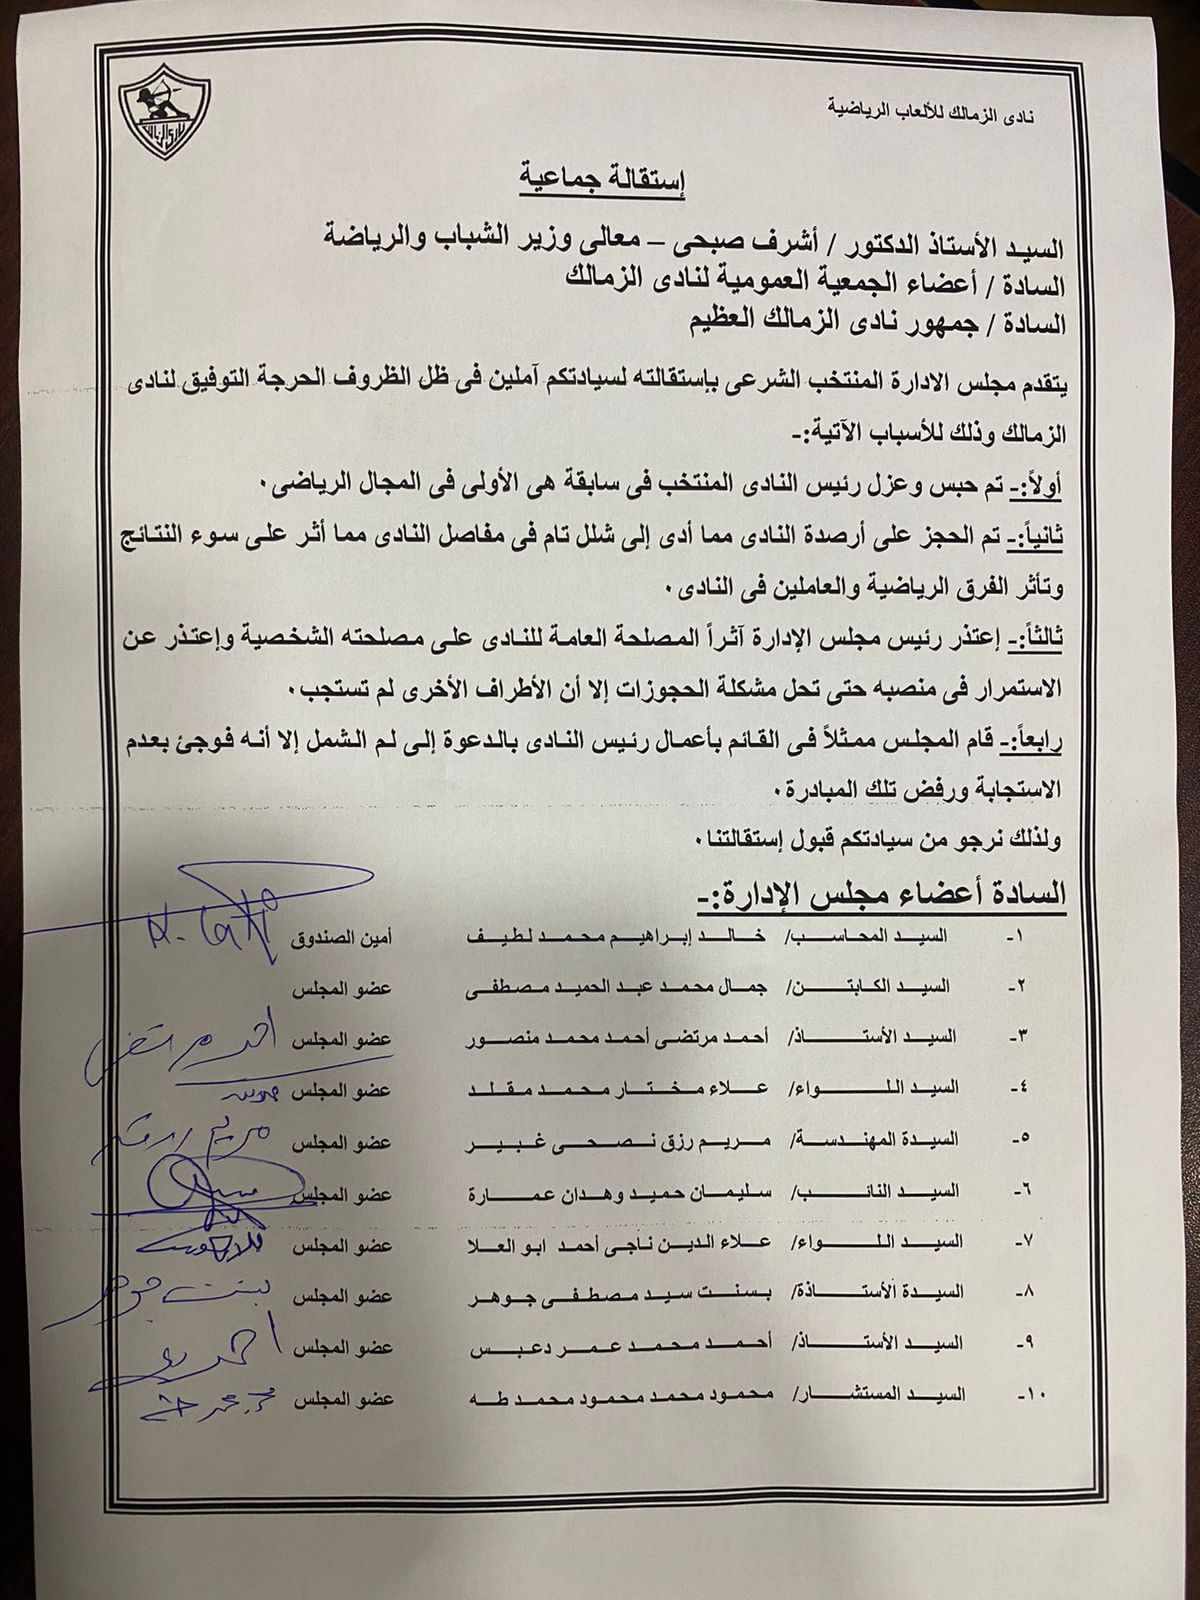 نادى الزمالك للألعاب الرياضية
إستقالة جماعية
السيد الأستاذ الدكتور / أشرف صبحى – معالى وزير الشباب والرياضة
السادة / أعضاء الجمعية العمومية لنادى الزمالك
السادة / جمهور نادى الزمالك العظيم
يتقدم مجلس الادارة المنتخب الشرعى بإستقالته لسيادتكم آملين فى ظل الظروف الحرجة التوفيق لنادى
الزمالك وذلك للأسباب الآتية:-
أولاً:- تم حبس وعزل رئيس النادى المنتخب فى سابقة هى الأولى فى المجال الرياضى٠
ثانياً:- تم الحجز على أرصدة النادى مما أدى إلى شلل تام فى مفاصل النادى مما أثر على سوء النتائج
وتأثر الفرق الرياضية والعاملين فى النادى٠
ثالثاً:- إعتذر رئيس مجلس الإدارة آثراً المصلحة العامة للنادى على مصلحته الشخصية وإعتذر عن
الاستمرار فى منصبه حتى تحل مشكلة الحجوزات إلا أن الأطراف الأخرى لم تستجب٠
رابعاً:- قام المجلس ممثلاً فى القائم بأعمال رئيس النادى بالدعوة إلى لم الشمل إلا أنه فوجئ بعدم
الاستجابة ورفض تلك المبادرة٠
ولذلك نرجو من سيادتكم قبول إستقالتنا٠
السادة أعضاء مجلس الإدارة:-
١- السيد المحاسب/ خالد إبراهيم محمد لطيف أمين الصندوق
٢- السيد الكابتن/ جمال محمد عبد الحميد مصطفى عضو المجلس
٣- السيد الأستاذ/ أحمد مرتضى أحمد محمد منصور عضو المجلس احمد مرتضى
٤- السيد اللواء/ علاء مختار محمد مقلد عضو المجلس
٥- السيدة المهندسة/ مريم رزق نصحى غبير عضو المجلس مريم رزق
٦- السيد النائب/ سليمان حميد وهدان عمارة عضو المجلس
٧- السيد اللواء/ علاء الدين ناجى أحمد ابو العلا عضو المجلس
٨- السيدة الأستاذة/ بسنت سيد مصطفى جوهر عضو المجلس بسنت جوهر
٩- السيد الأستاذ/ أحمد محمد عمر دعبس عضو المجلس
١٠- السيد المستشار/ محمود محمد محمود محمد طه عضو المجلس